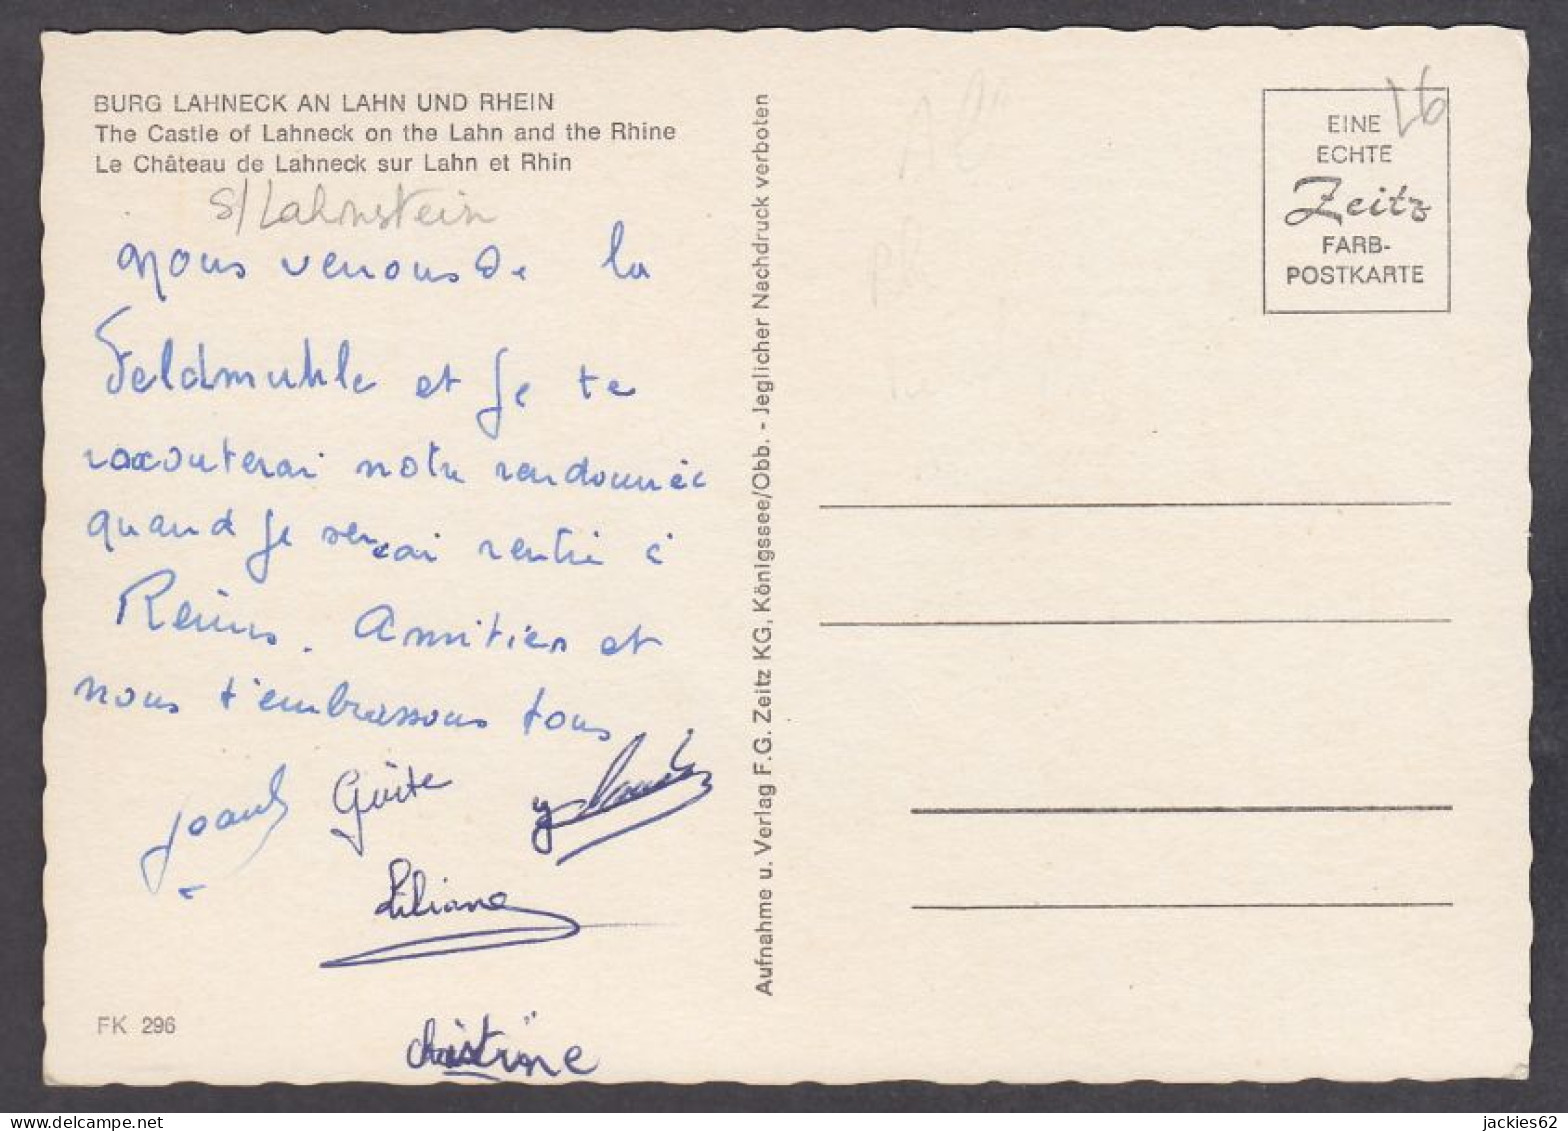 BURG LAHNECK AN LAHN UND RHEIN
The Castle of Lahneck on the Lahn and the Rhine
Le Château de Lahneck sur Lahn et Rhin
S/Lahnstein
nous venons de la
Feldmuhle et je te
raconterai notre randonnée
quand je serai rentré à
Reims. Amitiés et
nous t'embrassons tous
Guite
Liliane
christine
FK 296
Aufnahme u. Verlag F.G. Zeitz KG, Königssee/Obb. - Jeglicher Nachdruck verboten
EINE
ECHTE
Zeitz
FARB-
POSTKARTE
delcampe.net
jackies62